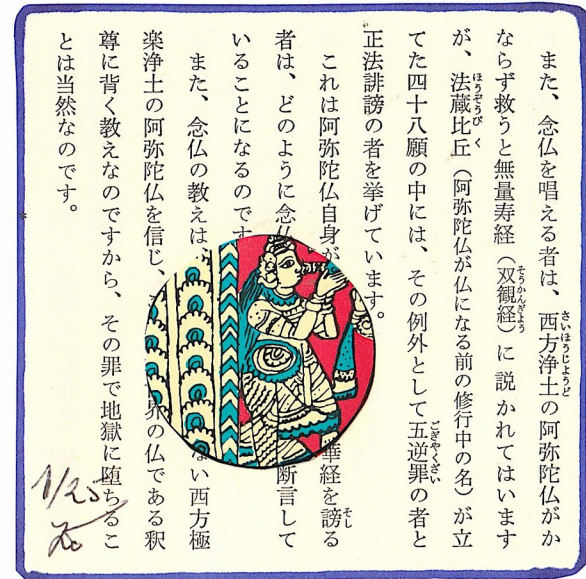 また、念仏を唱える者は、西方浄土の阿弥陀仏がか
ならず救うと無量寿経（双観経）に説かれてはいます
が、法蔵比丘（阿弥陀仏が仏になる前の修行中の名）が立
てた四十八願の中には、その例外として五逆罪の者と
正法誹謗の者を挙げています。
これは阿弥陀仏自身が 華経を謗る
者は、どのように念仏 断言して
いることになるのです
また、念仏の教えは、 ない西方極
楽浄土の阿弥陀仏を信じ、 界の仏である釈
尊に背く教えなのですから、その罪で地獄に堕ちるこ
とは当然なのです。
1/25